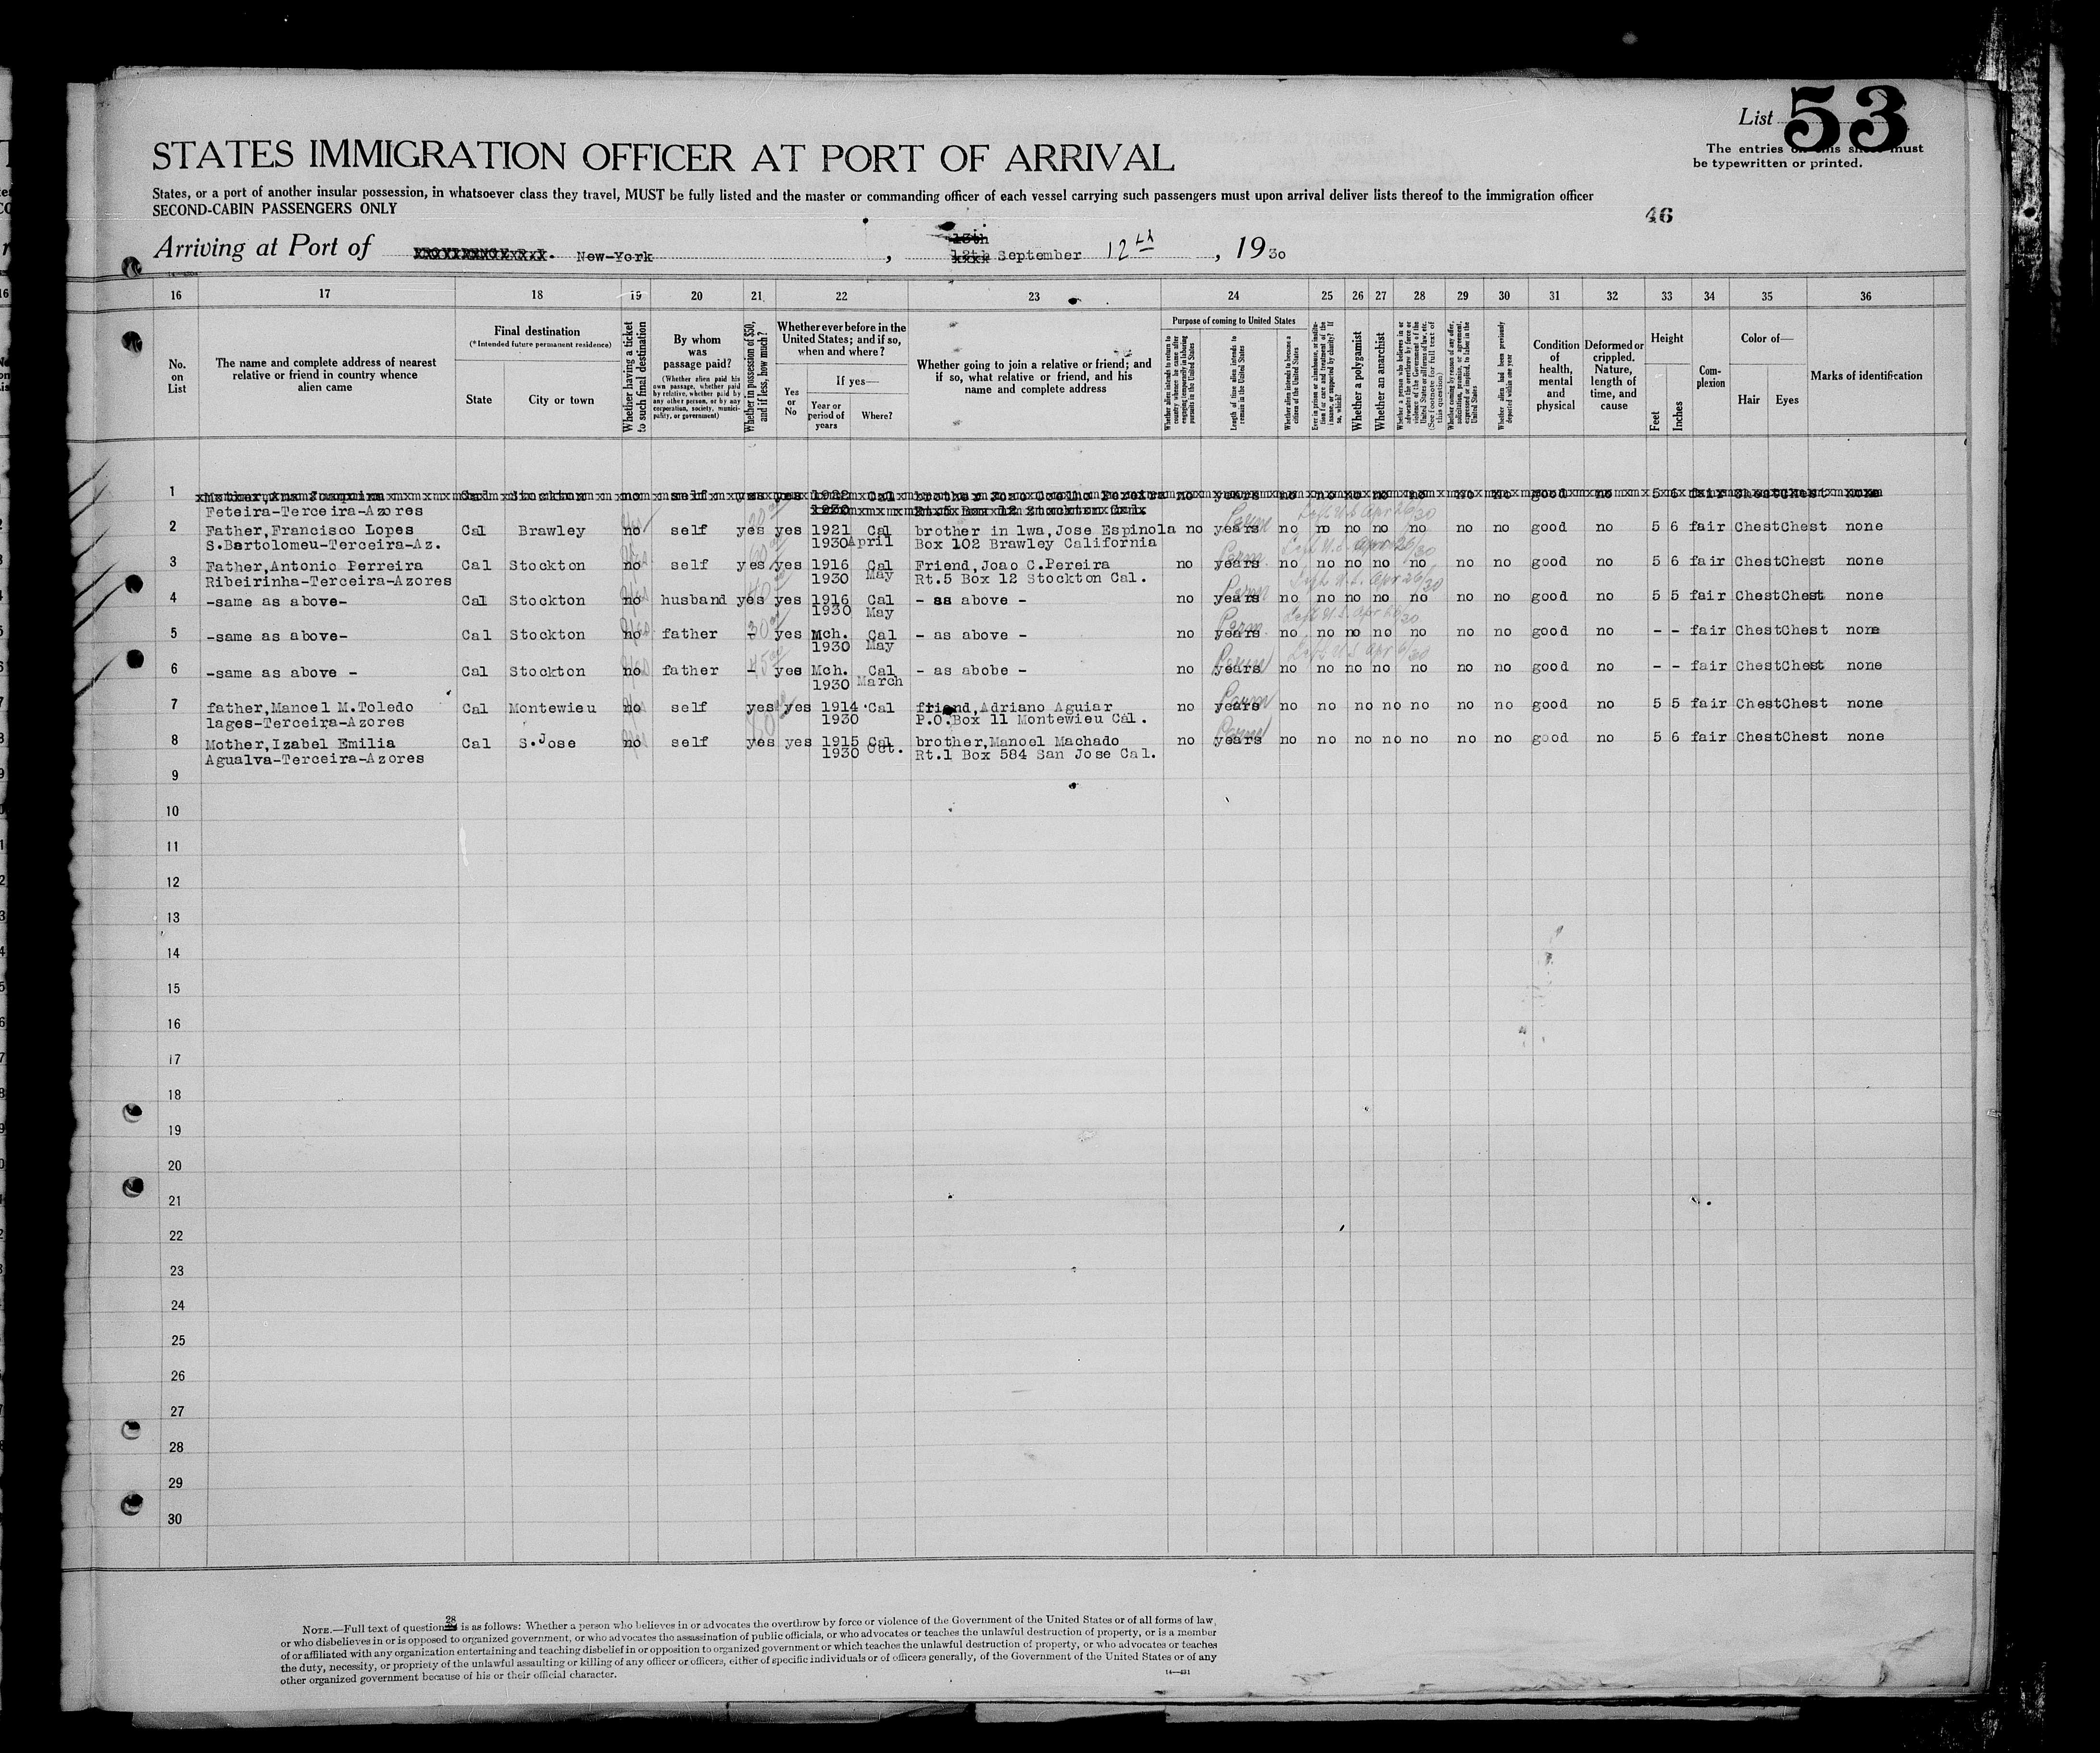 List 53
The entries on this sheet must
be typewritten or printed.
STATES IMMIGRATION OFFICER AT PORT OF ARRIVAL
States, or a port of another insular possession, in whatsoever class they travel, MUST be fully listed and the master or commanding officer of each vessel carrying such passengers must upon arrival deliver lists thereof to the immigration officer
SECOND-CABIN PASSENGERS ONLY
46
13th
Arriving at Port of PROVIDENCE R.I. New-York, 12th September 12th, 1930
16 17 18 19 20 21 22 23 24 25 26 27 28 29 30 31 32 33 34 35 36
No. on List
The name and complete address of nearest relative or friend in country whence alien came
Final destination
(*Intended future permanent residence)
State
City or town
Whether having a ticket to such final destination
By whom was passage paid?
(Whether alien paid his own passage, whether paid by relative, whether paid by any other person, or by any corporation, society, municipality, or government)
Whether in possession of $50, and if less, how much?
Whether ever before in the United States; and if so, when and where?
Yes or No
If yes—
Year or period of years
Where?
Whether going to join a relative or friend; and if so, what relative or friend, and his name and complete address
Purpose of coming to United States
Whether alien intends to return to country whence he came after engaging temporarily in laboring pursuits in the United States
Length of time alien intends to remain in the United States
Whether alien intends to become a citizen of the United States
Ever in prison or almshouse, or institution for care and treatment of the insane, or supported by charity? If so, which?
Whether a polygamist
Whether an anarchist
Whether a person who believes in or advocates the overthrow by force or violence of the Government of the United States or all forms of law, etc. (See footnote for full text of this question)
Whether coming by reason of any offer, solicitation, promise, or agreement, expressed or implied, to labor in the United States
Whether alien had been previously deported within one year
Condition of health, mental and physical
Deformed or crippled. Nature, length of time, and cause
Height
Feet
Inches
Complexion
Color of—
Hair
Eyes
Marks of identification
1 Mother, Ana Joaquina Cal Stockton no self yes yes 1922 Cal brother Jose Coelho Pereira no years no no no no no no no good no 5 6 fair Chest Chest none
Feteira-Terceira-Azores 1930 Rt.5 Box 12 Stockton Cal.
2 Father,Francisco Lopes Cal Brawley no self yes yes 1921 Cal brother in lwa,Jose Espinola no years no no no no no no no good no 5 6 fair Chest Chest none
S.Bartolomeu-Terceira-Az. 1930 April Box 102 Brawley California
3 Father,Antonio Perreira Cal Stockton no self yes yes 1916 Cal Friend,Joao C.Pereira no years no no no no no no no good no 5 6 fair Chest Chest none
Ribeirinha-Terceira-Azores 1930 May Rt.5 Box 12 Stockton Cal.
4 -same as above- Cal Stockton no husband yes yes 1916 Cal - as above - no years no no no no no no no good no 5 5 fair Chest Chest none
1930 May
5 -same as above- Cal Stockton no father - yes Mch. Cal - as above - no years no no no no no no no good no - - fair Chest Chest none
1930 May
6 -same as above - Cal Stockton no father - yes Mch. Cal - as abobe - no years no no no no no no no good no - - fair Chest Chest none
1930 March
7 father,Manoel M.Toledo Cal Montewieu no self yes yes 1914 Cal friend,Adriano Aguiar no years no no no no no no no good no 5 5 fair Chest Chest none
lages-Terceira-Azores 1930 P.O.Box 11 Montewieu Cal.
8 Mother,Izabel Emilia Cal S.Jose no self yes yes 1915 Cal brother,Manoel Machado no years no no no no no no no good no 5 6 fair Chest Chest none
Agualva-Terceira-Azores 1930 Oct. Rt.1 Box 584 San Jose Cal.
9
10
11
12
13
14
15
16
17
18
19
20
21
22
23
24
25
26
27
28
29
30
NOTE.—Full text of question 28 is as follows: Whether a person who believes in or advocates the overthrow by force or violence of the Government of the United States or of all forms of law,
or who disbelieves in or is opposed to organized government, or who advocates the assassination of public officials, or who advocates or teaches the unlawful destruction of property, or is a member
of or affiliated with any organization entertaining and teaching disbelief in or opposition to organized government or which teaches the unlawful destruction of property, or who advocates or teaches
the duty, necessity, or propriety of the unlawful assaulting or killing of any officer or officers, either of specific individuals or of officers generally, of the Government of the United States or of any
other organized government because of his or their official character.
14—431